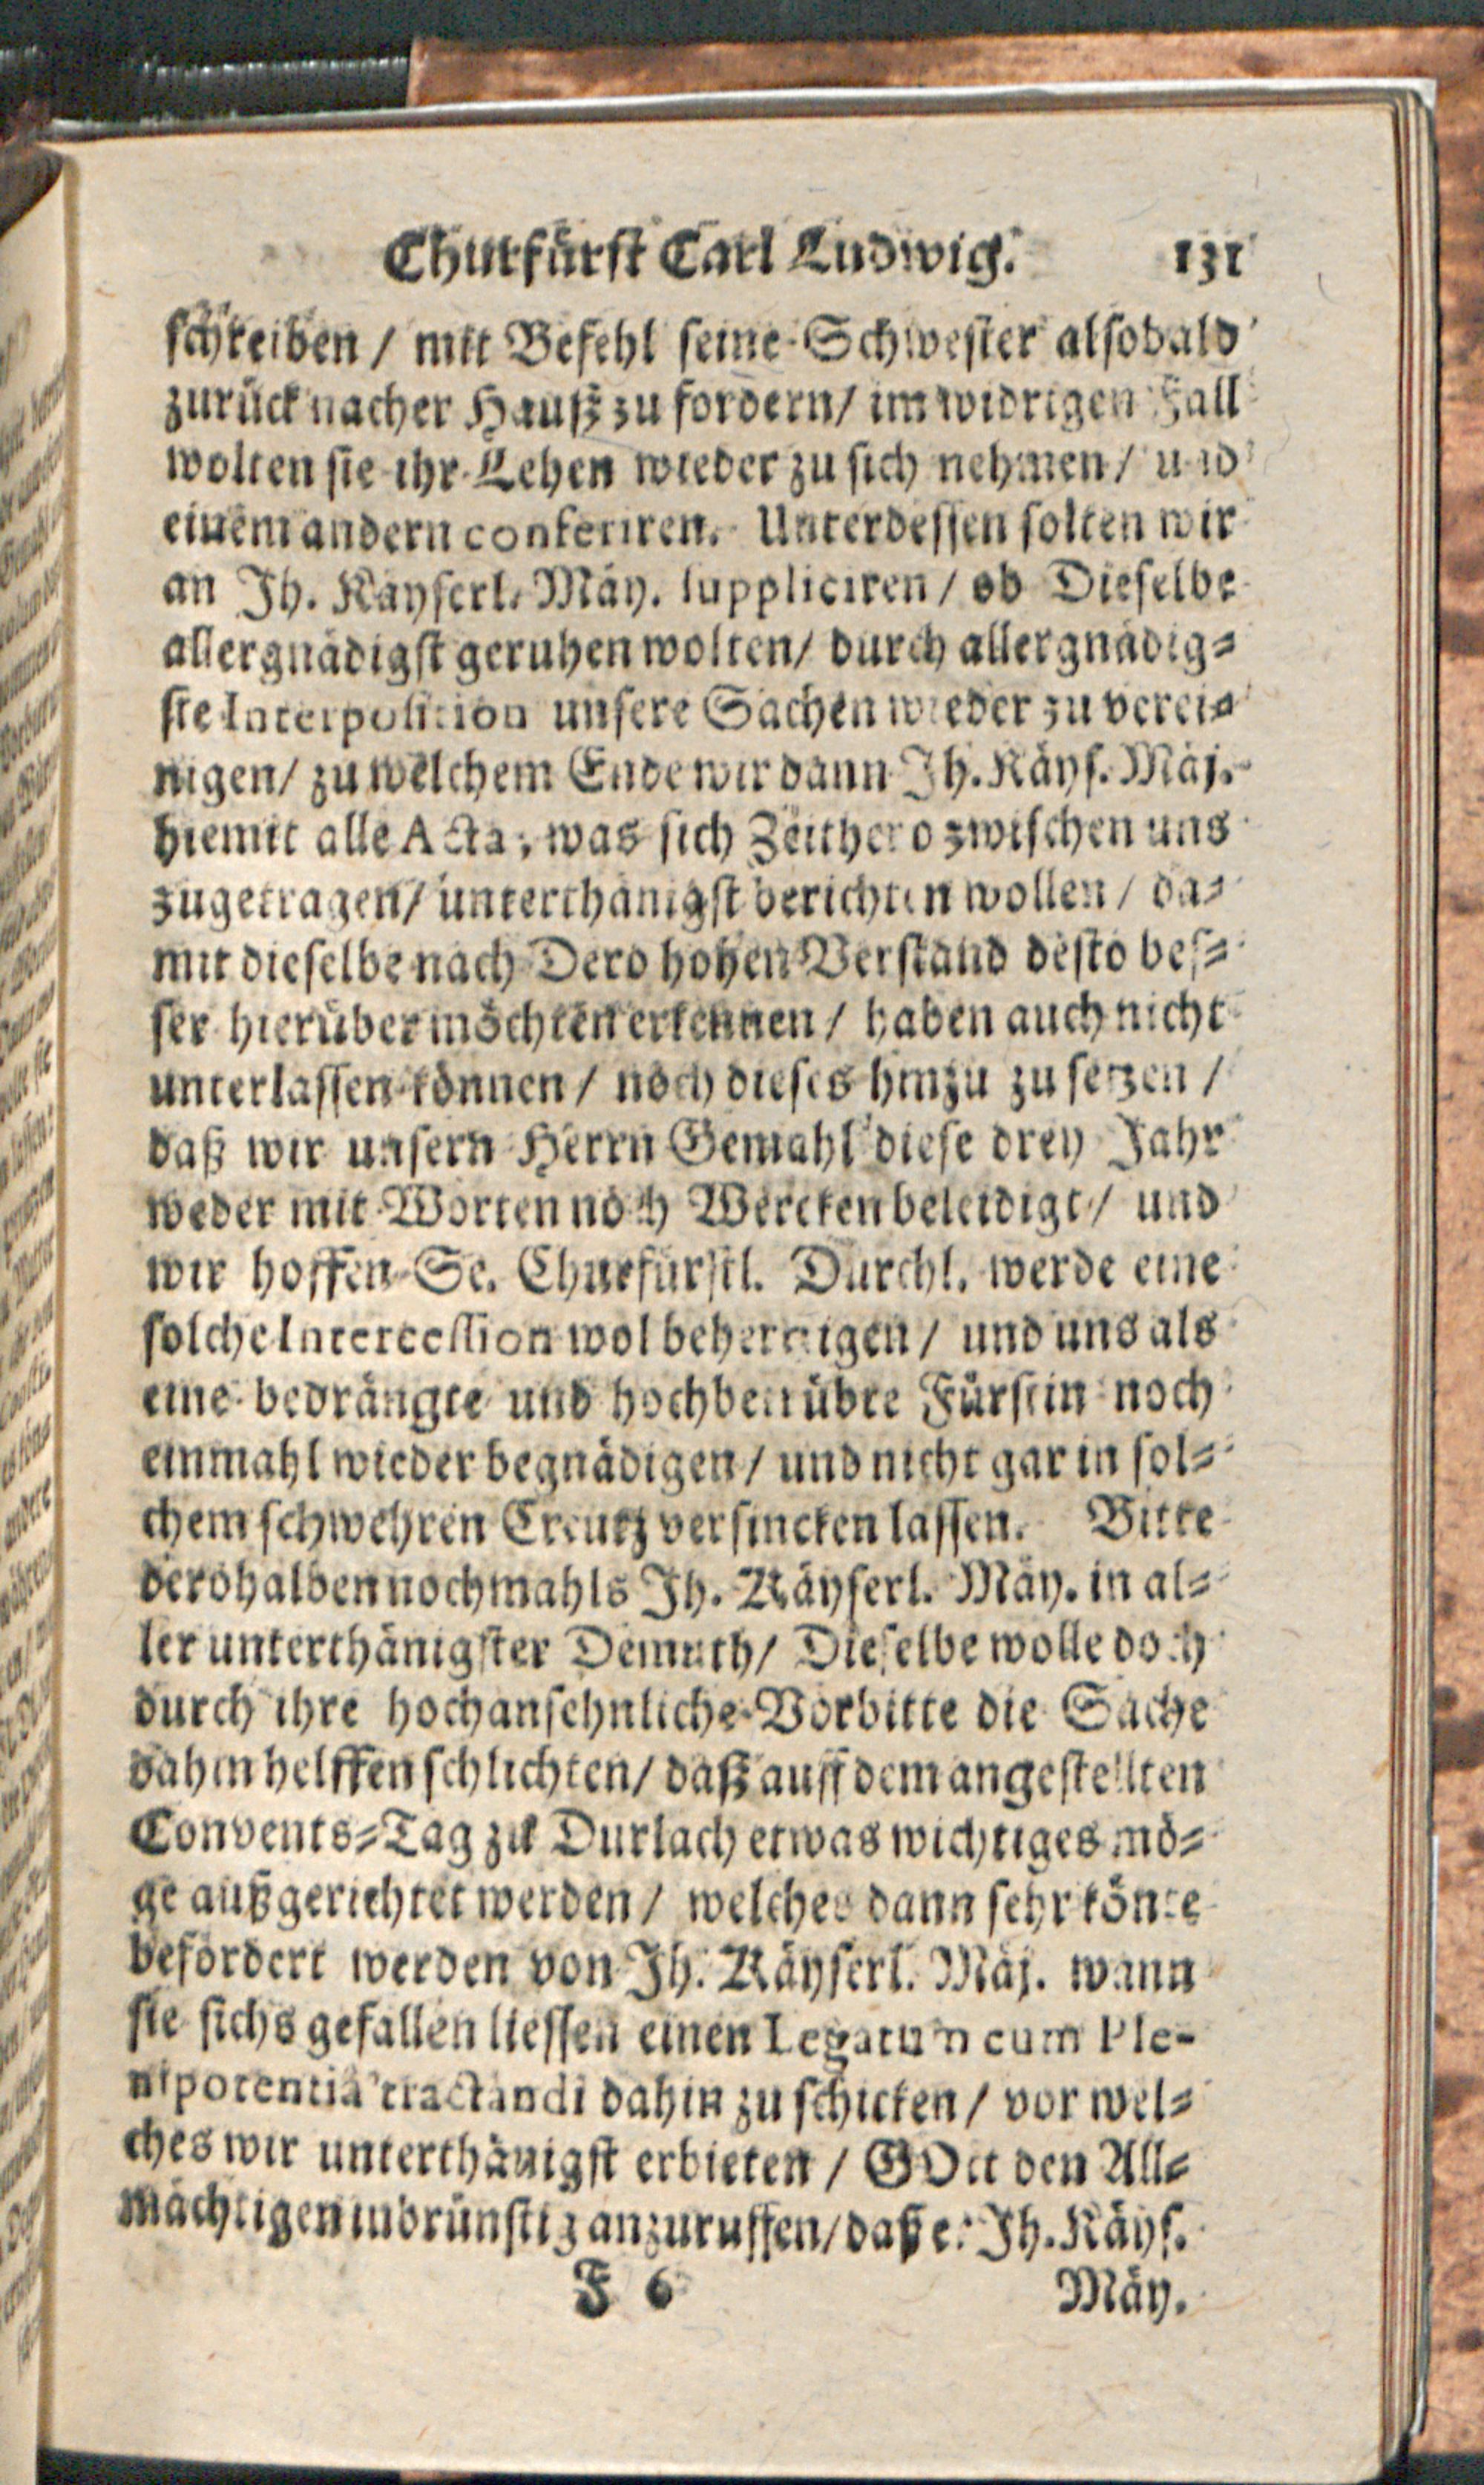 Churfürst Carl Ludwig. 131
schreiben / mit Befehl seine Schwester alsobald
zurück nacher Hauß zu fordern / im widrigen Fall
wolten sie ihr Lehen wieder zu sich nehmen / und
einem andern conferiren. Unterdessen solten wir
an Ih. Käyserl. Mäy. suppliciren / ob Dieselbe
allergnädigst geruhen wolten / durch allergnädig-
ste Interposition unsere Sachen wieder zu verei-
nigen / zu welchem Ende wir dann Ih. Käys. Mäj.
hiemit alle Acta, was sich Zeithero zwischen uns
zugetragen / unterthänigst berichten wollen / da-
mit dieselbe nach Dero hohen Verstand desto bes-
ser hierüber möchten erkennen / haben auch nicht
unterlassen können / noch dieses hinzu zu setzen /
daß wir unsern Herrn Gemahl diese drey Jahr
weder mit Worten noch Wercken beleidigt / und
wir hoffen Se. Churfürstl. Durchl. werde eine
solche Intercession wol behertzigen / und uns als
eine bedrängte und hochbetrübte Fürstin noch
einmahl wieder begnädigen / und nicht gar in sol-
chem schwehren Creutz versincken lassen. Bitte
derohalben nochmahls Ih. Käyserl. Mäy. in al-
ler unterthänigster Demuth / Dieselbe wolle doch
durch ihre hochansehnliche Vorbitte die Sache
dahin helffen schlichten / daß auff dem angestellten
Convents-Tag zu Durlach etwas wichtiges mö-
ge außgerichtet werden / welches dann sehr könte
befordert werden von Ih. Käyserl. Mäj. wann
sie sichs gefallen liessen einen Legatum cum Ple-
nipotentiâ tractandi dahin zu schicken / vor wel-
ches wir unterthänigst erbieten / GOtt den All-
mächtigen inbrünstig anzuruffen / daß er Ih. Käys.
F 6 Mäy.